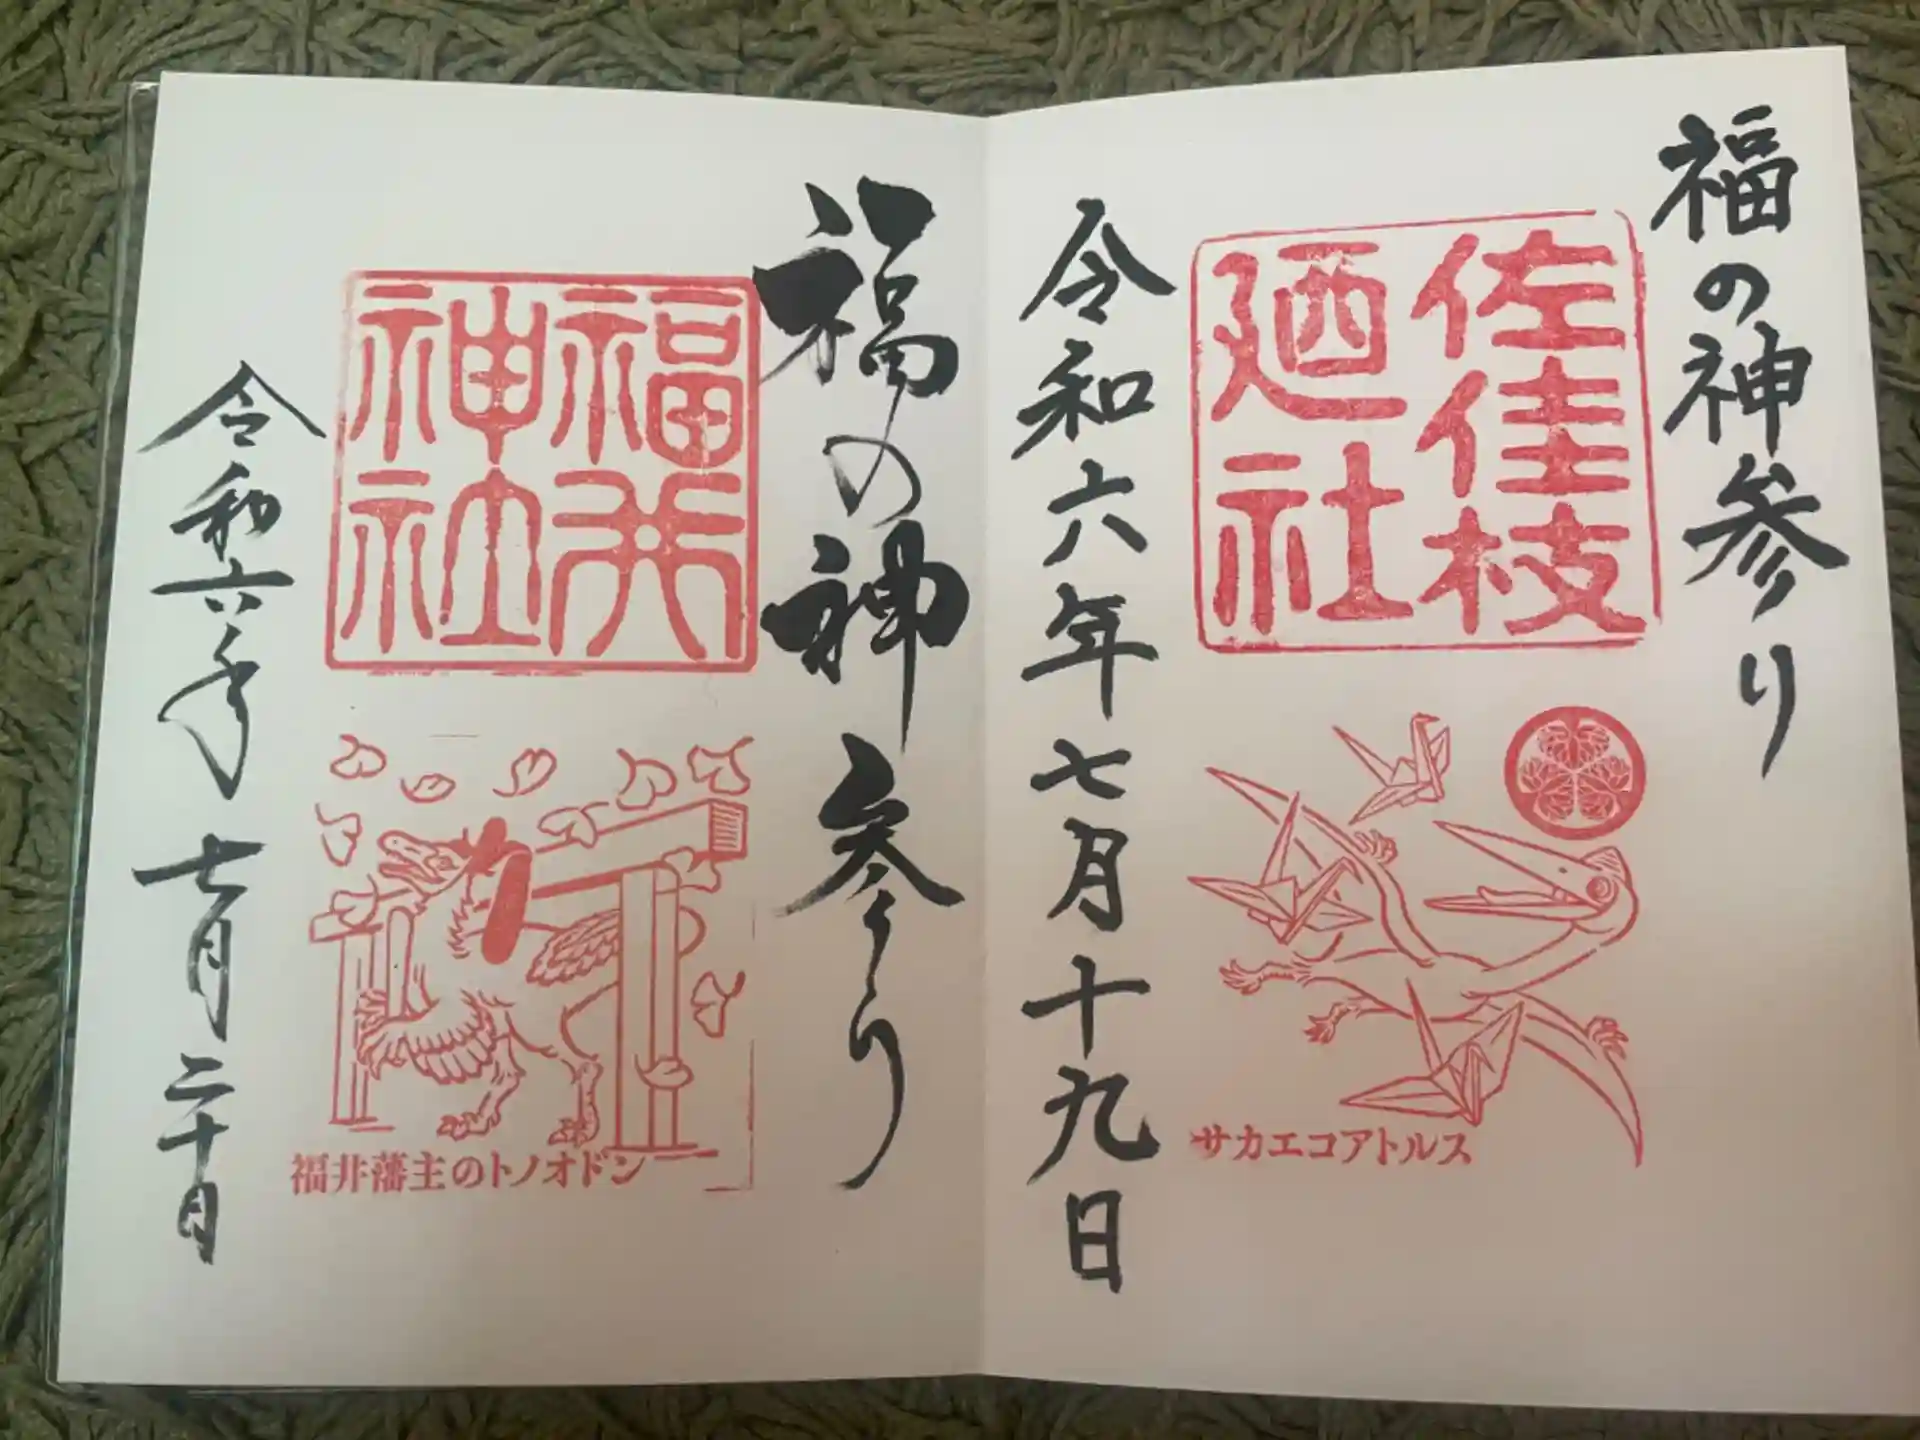 福の神参り
佐佳枝
廼社
サカエコアトルス
令和六年七月十九日
福の神参り
福井
神社
福井藩主のトノオドン
令和六年七月二十日